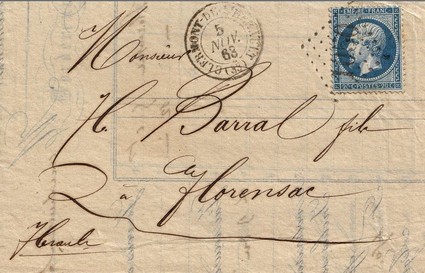 CLERMONT-DE-L'HERAULT
5
NOV.
63
EMPIRE FRANC.
20 C. POSTES 20 C.
Monsieur
H. Barral fils
à Florensac
Herault